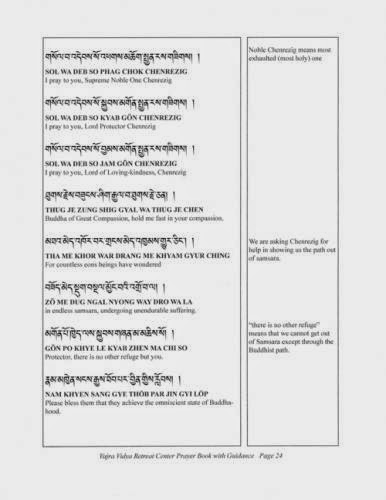 གསོལ་བ་འདེབས་སོ་འཕགས་མཆོག་སྤྱན་རས་གཟིགས། །
SOL WA DEB SO PHAG CHOK CHENREZIG
I pray to you, Supreme Noble One Chenrezig
གསོལ་བ་འདེབས་སོ་སྐྱབས་མགོན་སྤྱན་རས་གཟིགས། །
SOL WA DEB SO KYAB GÖN CHENREZIG
I pray to you, Lord Protector Chenrezig
གསོལ་བ་འདེབས་སོ་བྱམས་མགོན་སྤྱན་རས་གཟིགས། །
SOL WA DEB SO JAM GÖN CHENREZIG
I pray to you, Lord of Loving-kindness, Chenrezig
ཐུགས་རྗེས་བཟུངས་ཤིག་རྒྱལ་བ་ཐུགས་རྗེ་ཅན། །
THUG JE ZUNG SHIG GYAL WA THUG JE CHEN
Buddha of Great Compassion, hold me fast in your compassion.
མཐའ་མེད་འཁོར་བར་གྲངས་མེད་འཁྱམས་གྱུར་ཅིང་། །
THA ME KHOR WAR DRANG ME KHYAM GYUR CHING
For countless eons beings have wondered
བཟོད་མེད་སྡུག་བསྔལ་མྱོང་བའི་འགྲོ་བ་ལ། །
ZÖ ME DUG NGAL NYONG WAY DRO WA LA
in endless samsara, undergoing unendurable suffering.
མགོན་པོ་ཁྱེད་ལས་སྐྱབས་གཞན་མ་མཆིས་སོ། །
GÖN PO KHYE LE KYAB ZHEN MA CHI SO
Protector, there is no other refuge but you.
རྣམ་མཁྱེན་སངས་རྒྱས་ཐོབ་པར་བྱིན་གྱིས་རློབས། །
NAM KHYEN SANG GYE THÖB PAR JIN GYI LÖP
Please bless them that they achieve the omniscient state of Buddha-
hood.
Noble Chenrezig means most
exhausted (most holy) one
We are asking Chenrezig for
help in showing us the path out
of samsara.
"there is no other refuge"
means that we cannot get out
of Samsara except through the
Buddhist path.
Vajra Vidya Retreat Center Prayer Book with Guidance Page 24